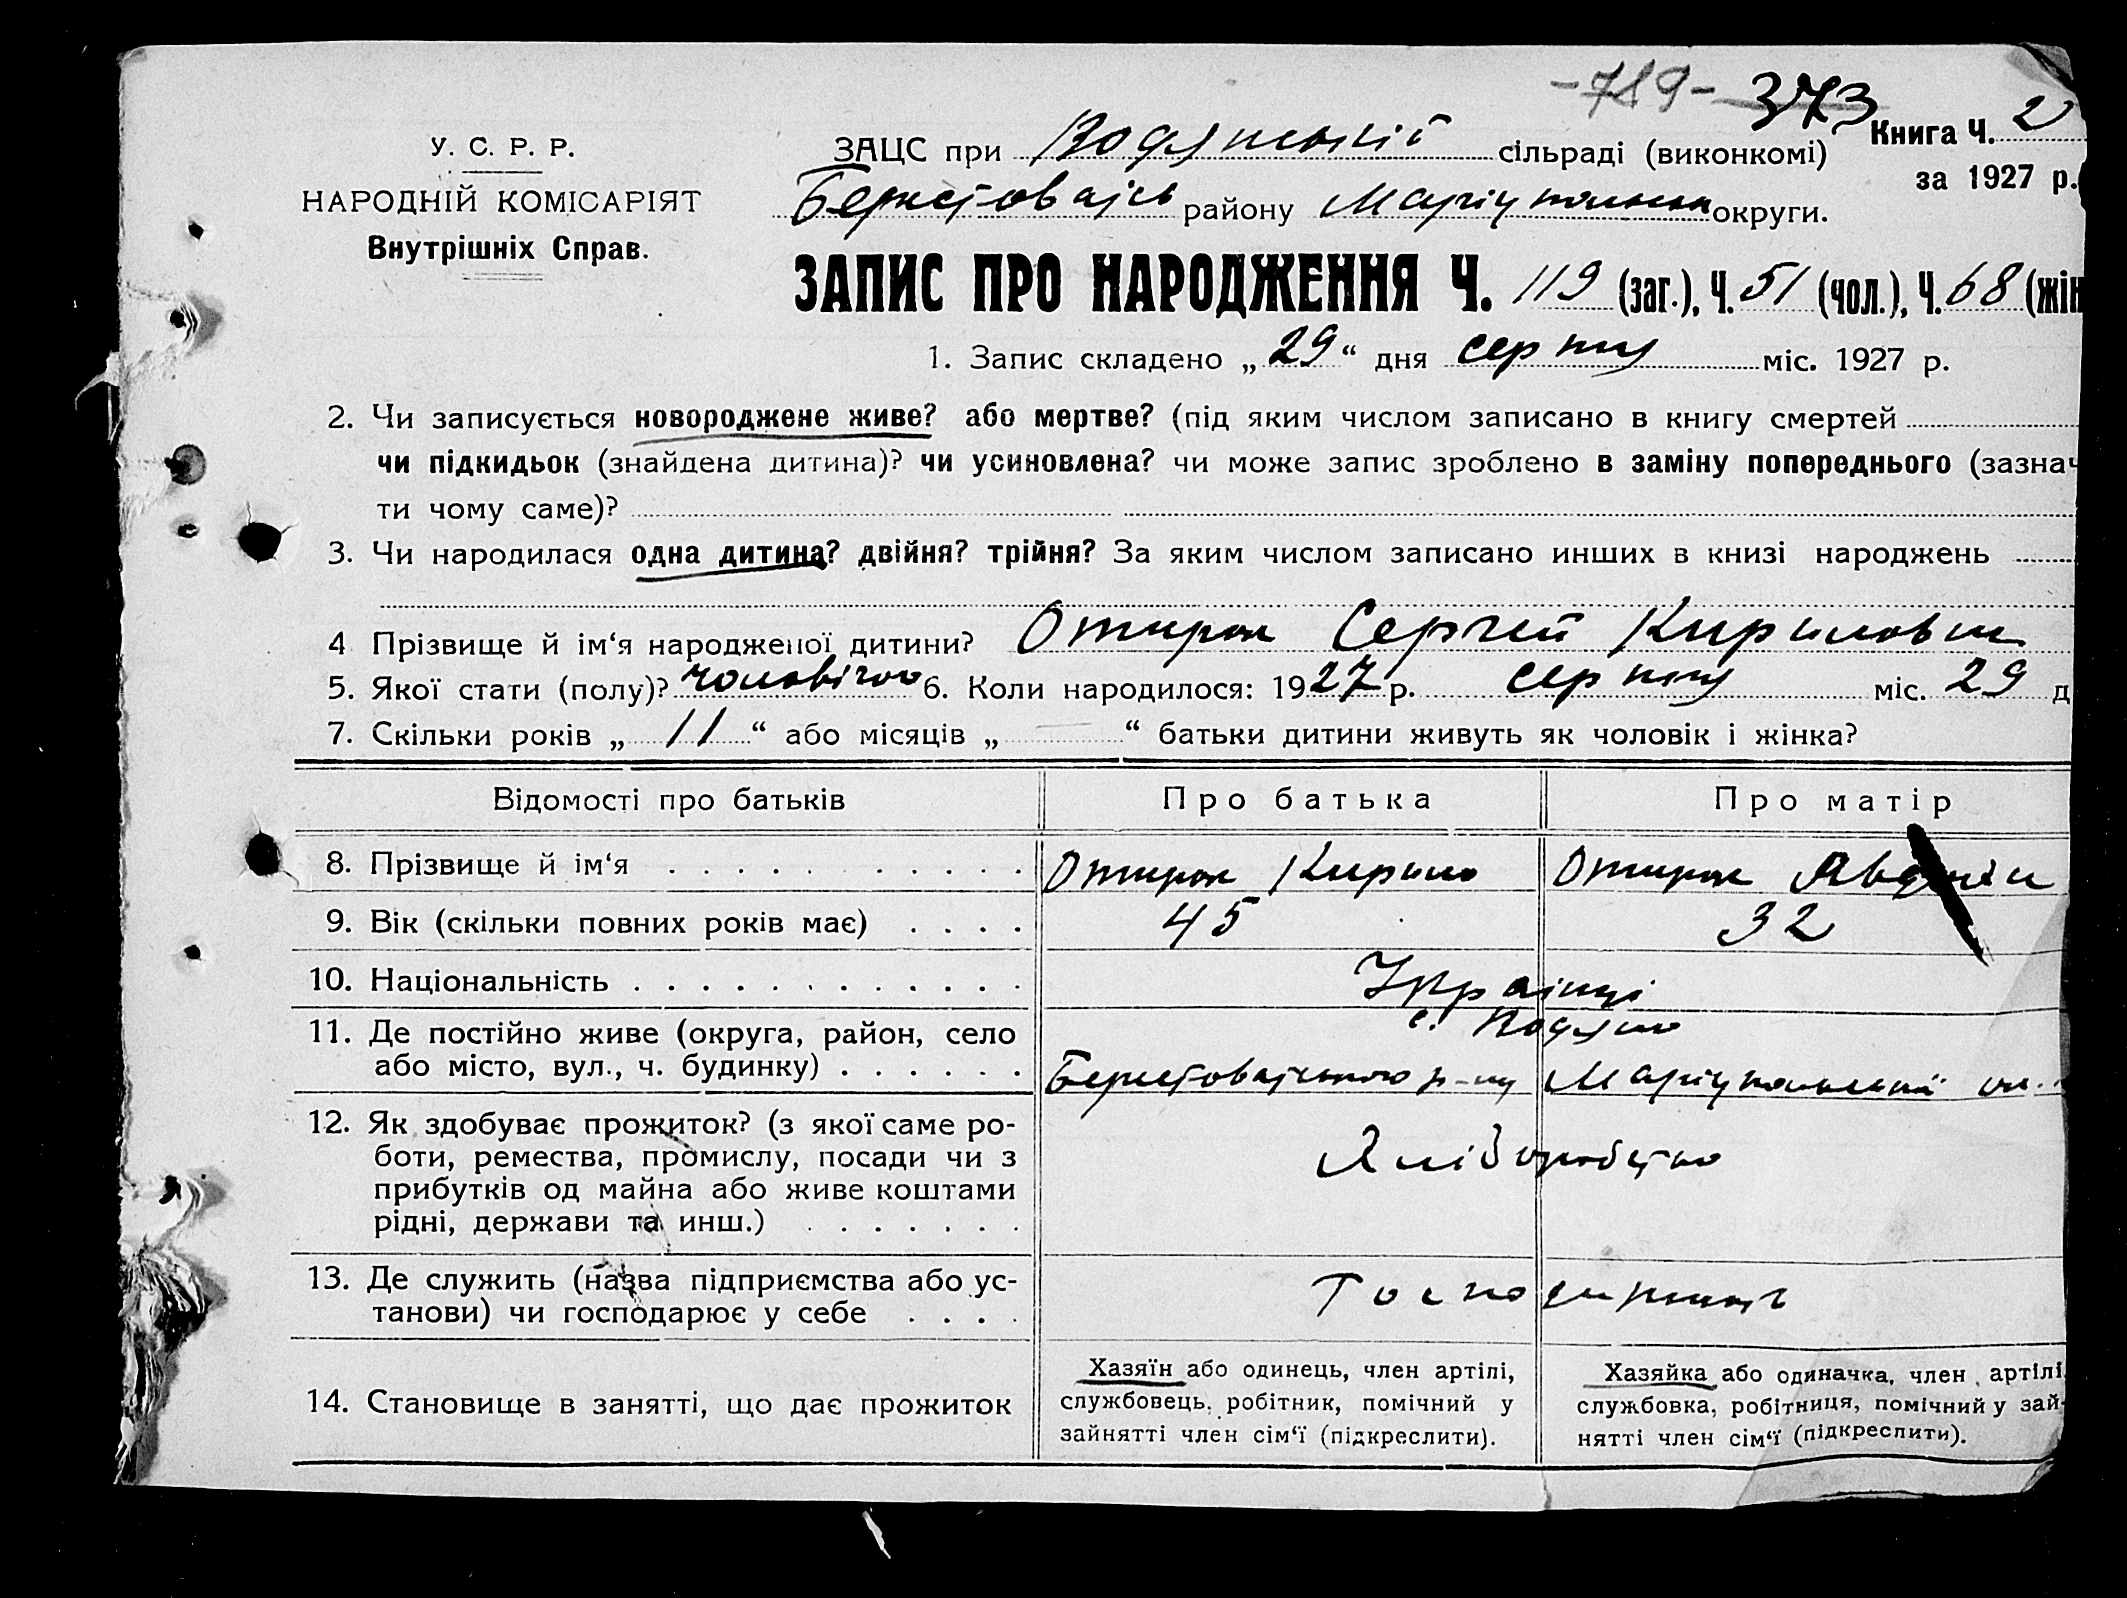 -789- 373
У. С. Р. Р.
НАРОДНІЙ КОМІСАРІЯТ
Внутрішніх Справ.
ЗАЦС при Водянській сільраді (виконкомі) Книга Ч. 2
за 1927 р.
району Маріупольськ округи.
ЗАПИС ПРО НАРОДЖЕННЯ Ч. 119 (заг.), Ч. 51 (чол.), Ч. 68 (жін
1. Запис складено „ 29 “ дня серпня міс. 1927 р.
2. Чи записується новороджене живе? або мертве? (під яким числом записано в книгу смертей
чи підкидьок (знайдена дитина)? чи усиновлена? чи може запис зроблено в заміну попереднього (зазнач
ти чому саме)?
3. Чи народилася одна дитина? двійня? трійня? За яким числом записано инших в книзі народжень
4 Прізвище й ім‘я народженої дитини? Сергей Кирилович
5. Якої стати (полу)? чоловічого 6. Коли народилося: 1927 р. серпня міс. 29 д
7. Скільки років „ 11 “ або місяців „ “ батьки дитини живуть як чоловік і жінка?
Відомості про батьків Про батька Про матір
8. Прізвище й ім‘я Кирило
9. Вік (скільки повних років має) 45 32
10. Національність Українці
11. Де постійно живе (округа, район, село с. Водяно
або місто, вул., ч. будинку) Берестовацького р-ну Маріупольській ок.
12. Як здобуває прожиток? (з якої саме ро-
боти, ремества, промислу, посади чи з Хліборобство
прибутків од майна або живе коштами
рідні, держави та инш.)
13. Де служить (назва підприємства або ус-
танови) чи господарює у себе
14. Становище в занятті, що дає прожиток
Хазяїн або одинець, член артілі,
службовець, робітник, помічний у
зайнятті член сім‘ї (підкреслити).
Хазяйка або одиначка, член артілі
службовка, робітниця, помічний у зай-
нятті член сім‘ї (підкреслити).